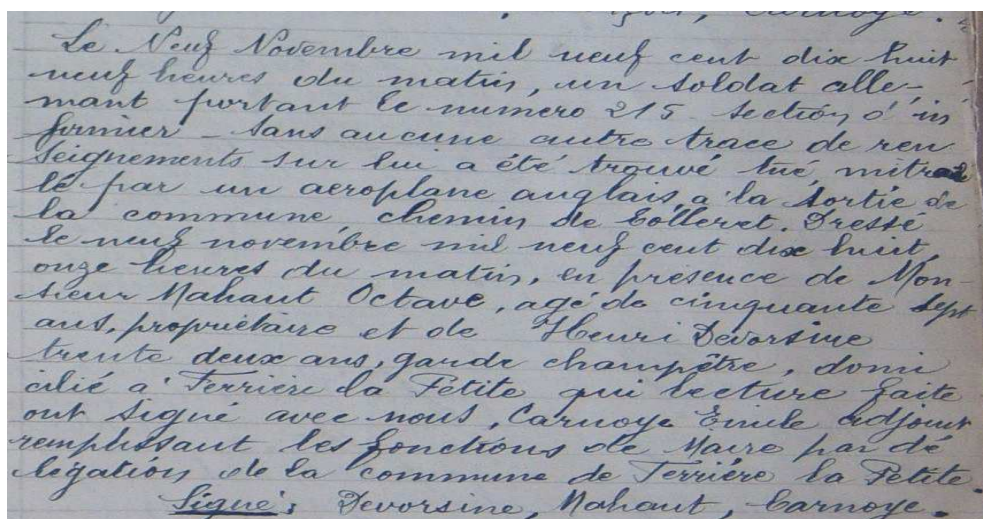 Carnoye.
Le Neuf Novembre mil neuf cent dix huit
neuf heures du matin, un soldat alle-
mant portant le numero 215 section d'in
firmier - sans aucune autre trace de ren
seignements sur lui a été trouvé tué, mitrail
lé par un aeroplane anglais, à la sortie de
la commune chemin de Colleret. Dressé
le neuf novembre mil neuf cent dix huit,
onze heures du matin, en presence de Mon-
sieur Mahaut Octave, agé de cinquante sept
ans, propriétaire et de Henri Devorsine
trente deux ans, garde champêtre, domi
cilié à Ferrière la Petite qui lecture faite
ont signé avec nous, Carnoye Emile adjoint
remplissant les fonctions de Maire par dé
légation de la commune de Ferrière la Petite.
Signé: Devorsine, Mahaut, Carnoye.